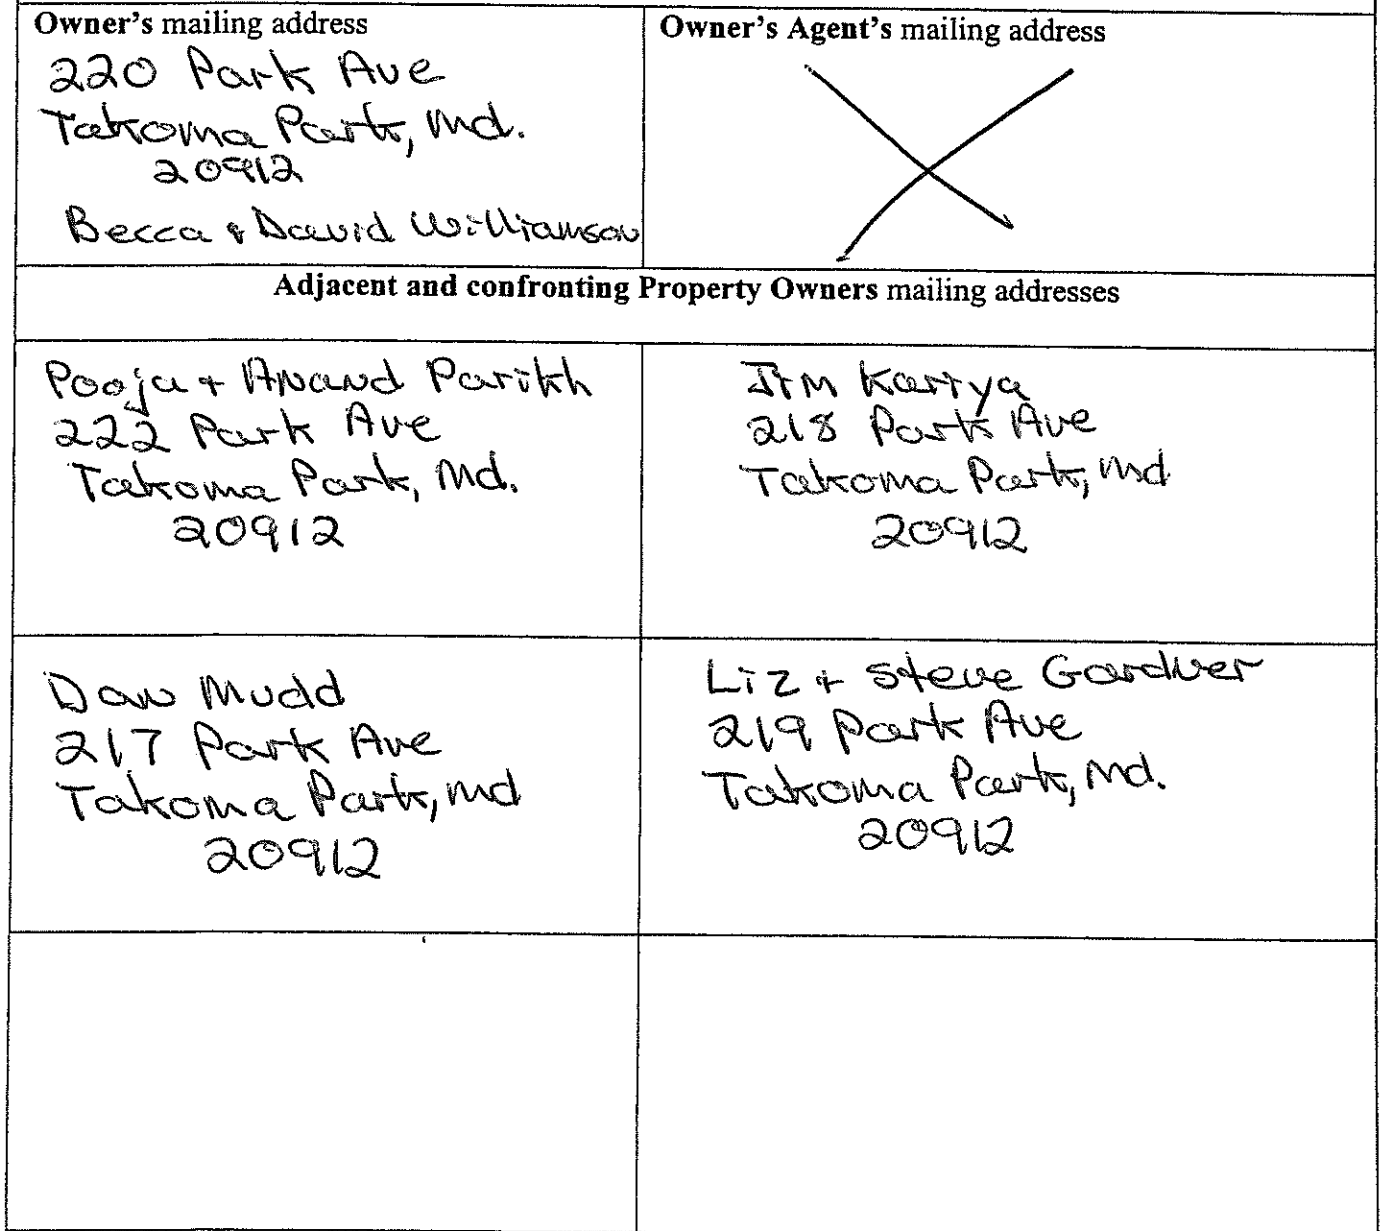 Owner's mailing address
220 Park Ave
Takoma Park, Md.
20912
Becca & David Williamson
Owner's Agent's mailing address
Adjacent and confronting Property Owners mailing addresses
Pooja + Anand Parikh
222 Park Ave
Takoma Park, Md.
20912
Jim Kariya
218 Park Ave
Takoma Park, Md
20912
Dan Mudd
217 Park Ave
Takoma Park, Md
20912
Liz + Steve Gardner
219 Park Ave
Takoma Park, Md.
20912